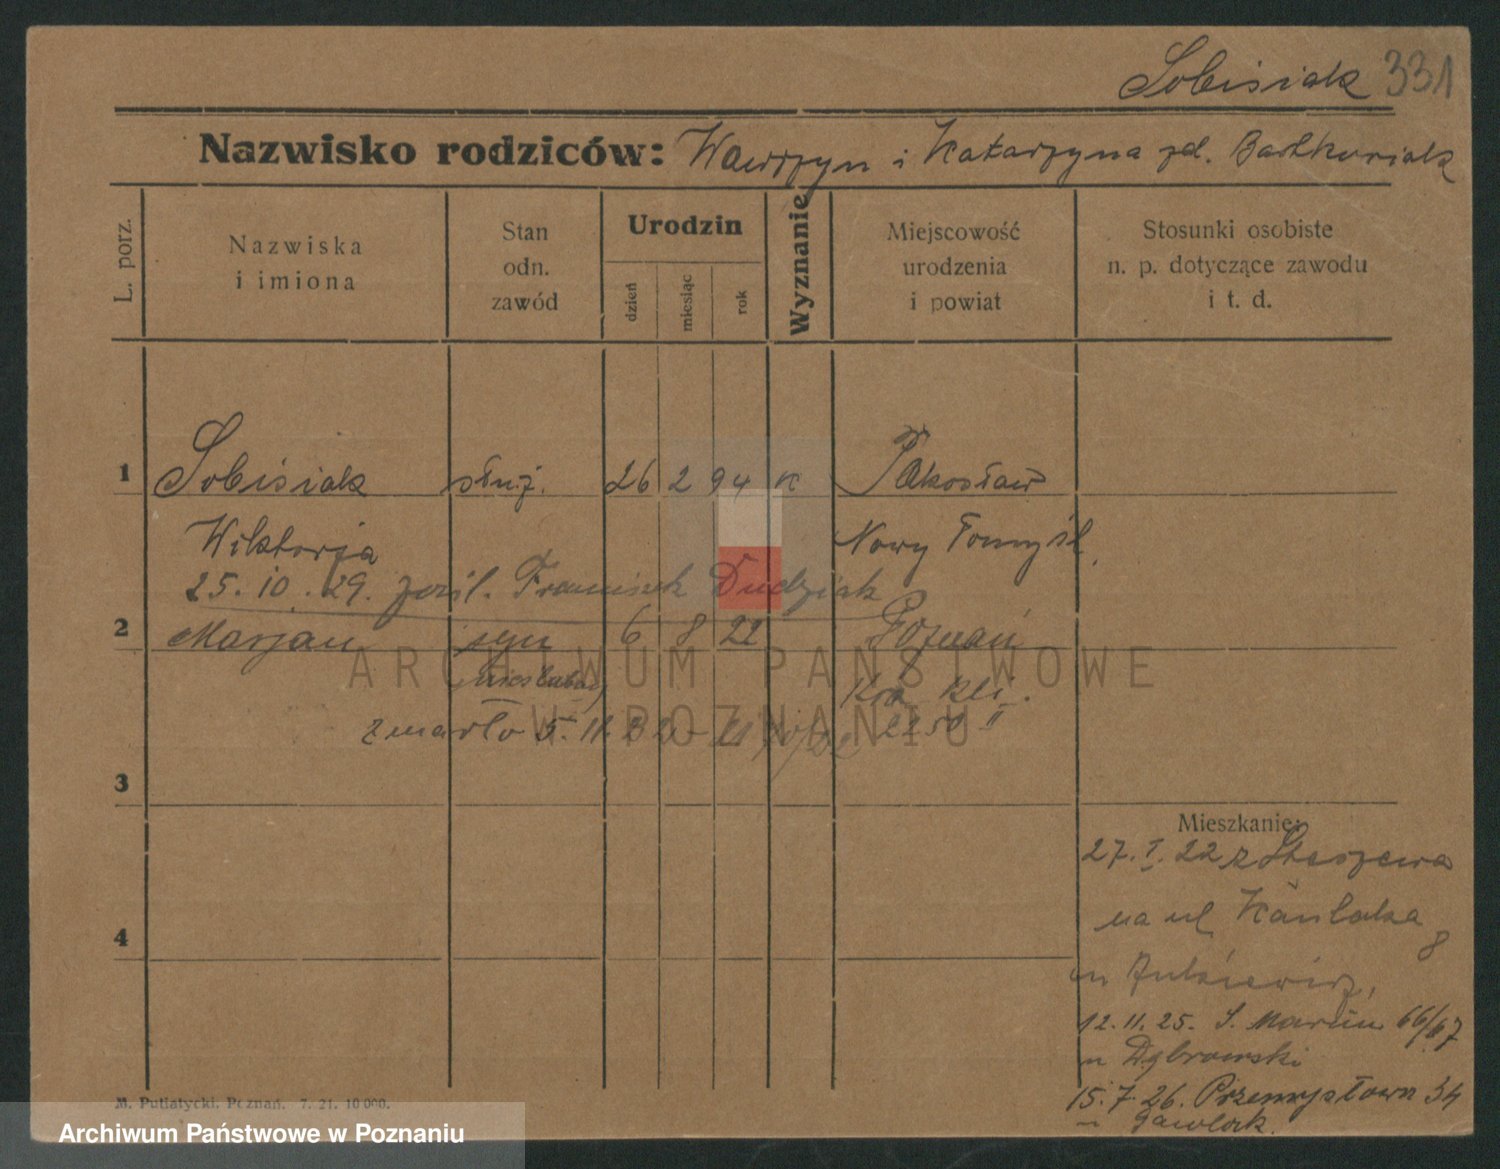 Sobisiak 331
Nazwisko rodziców: Wawrzyn i Katarzyna zd. Bartkowiak
L. porz.
Nazwiska i imiona
Stan odn. zawód
Urodzin
dzień
miesiąc
rok
Wyznanie
Miejscowość urodzenia i powiat
Stosunki osobiste n. p. dotyczące zawodu i t. d.
1 Sobisiak służ. 26 2 94 K Pakosław
Wiktorja Nowy Tomyśl
25.10.29. zaśl. Franciszek Dudziak
2 Marjan syn 6 8 22 Poznań
nieślubny
zmarło 5.11.
2250 II
ARCHIWUM PAŃSTWOWE
W POZNANIU
3
Mieszkanie:
27.I.22 z Stęszewa
na ul
8
4
12.11.25. S. Marcin 66/67
u Dąbrowski
15.7.26. Przemysłowa 34
M. Putiatycki, Poznań. 7. 21. 10 000.
Archiwum Państwowe w Poznaniu